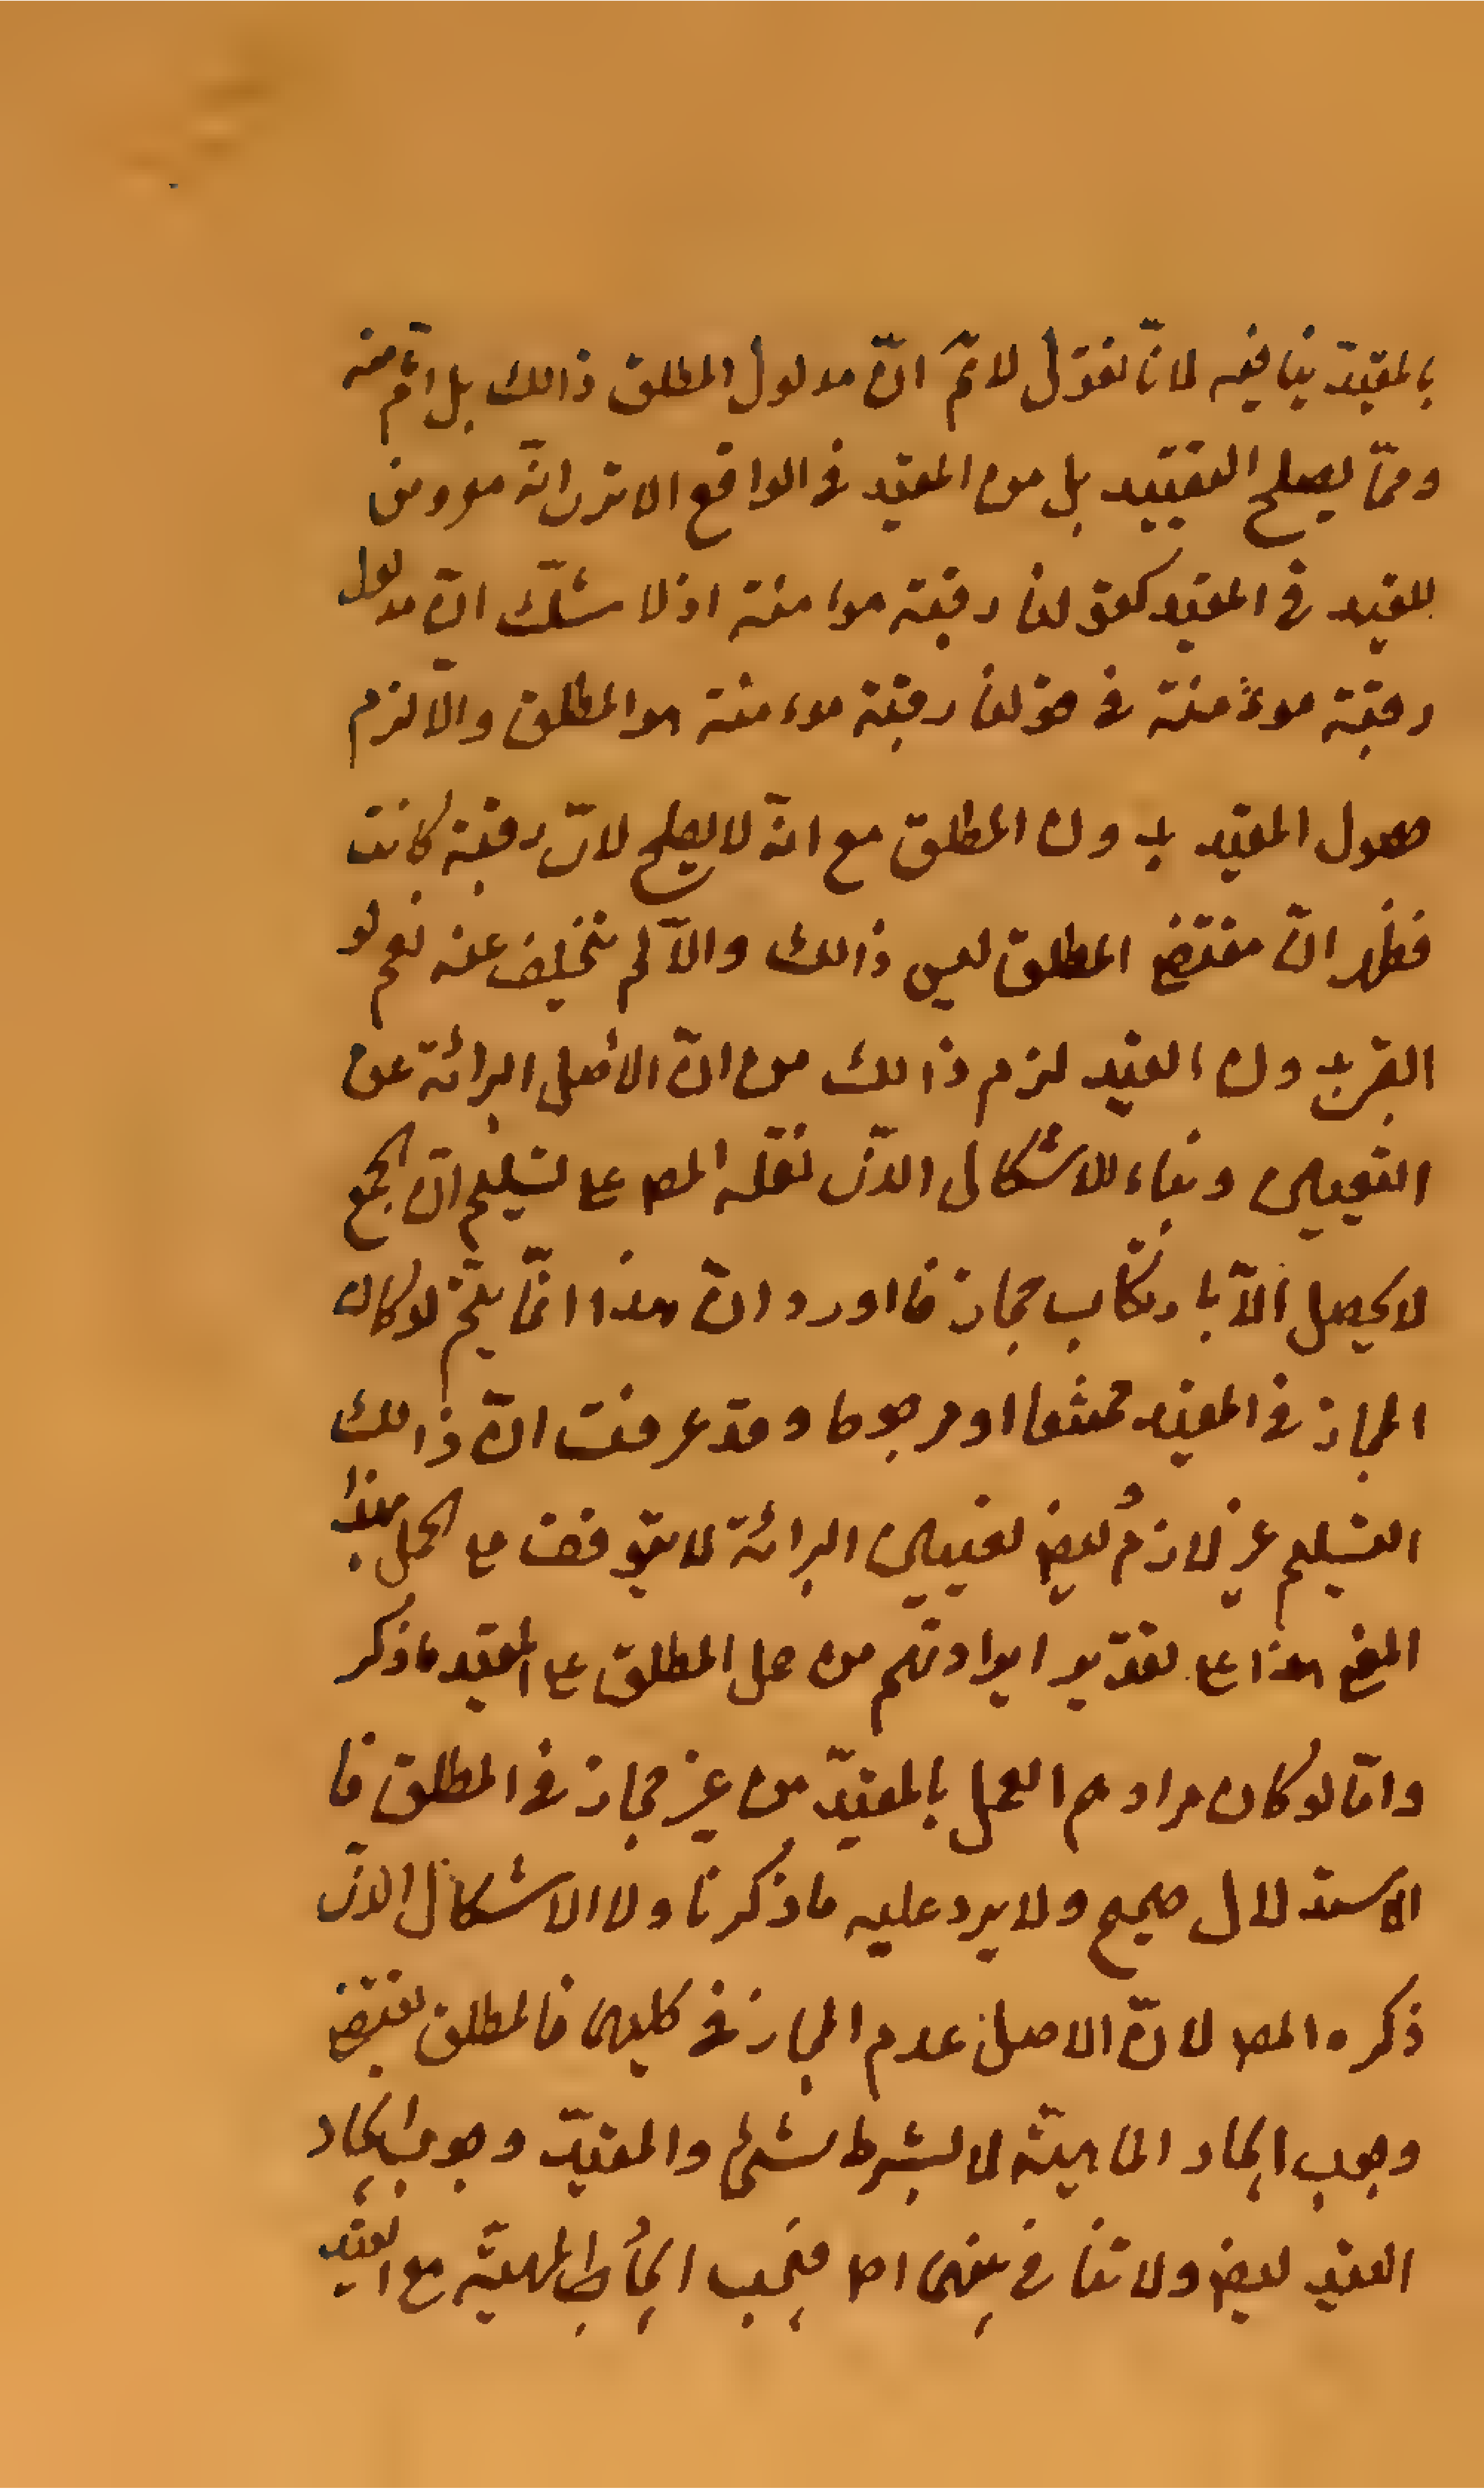 بالمقيّد ينافيه لانّا نقول لا نمّ انّ مدلول المطلق ذالك بل اعمّ منه
وممّا يصلح التقييد بل من المقيد في الواقع الا ترى انّه معروض
للقيد في المقيد كقولنا رقبة موامنة اذ لا شكّ انّ مدلول
رقبة موءمنة في قولنا رقبة موءمنة هو المطلق والّا لزم
حصول المقيّد بدون المطلق مع انّه لا يصلح لانّ رقبة كانت
فظهر انّ مقتضى المطلق ليس ذالك والّا لم يتخلف عنه نعم لو
بدون القيد لزم ذالك من انّ الاصل البرائة عن
التعيين وبناء للاشكال الذى نقله المصـ على تسليم انّ الجمع
لا يحصل الّا بارتكاب مجاز فاورد انّ هذا انّما يتمّ لو كان
المجاز في المقيّد او مرجوحا وقد عرفت انّ ذالك
التسليم غير لازم تعيين البرائة لا يتوقف على الحمل بهذا
المعنى هذا على تقدير ايرادتهم من حمل المطلق على المقيّد ما ذكر
وامّا لو كان مرادهم العمل بالمقيّد من غير مجاز في المطلق فا
الاستدلال صحيح ولا يرد عليه ما ذكرنا ولا الاشكال الذى
ذكره المصـ لانّ الاصل عدم المجاز في كليهما فالمطلق يقتضى
وجوب ايجاد الماهيّة لا بشرط شئ والمقيّد وجوب ايجاد
القيد ايضا ولا تنافي بينهما فيجب مع القيد